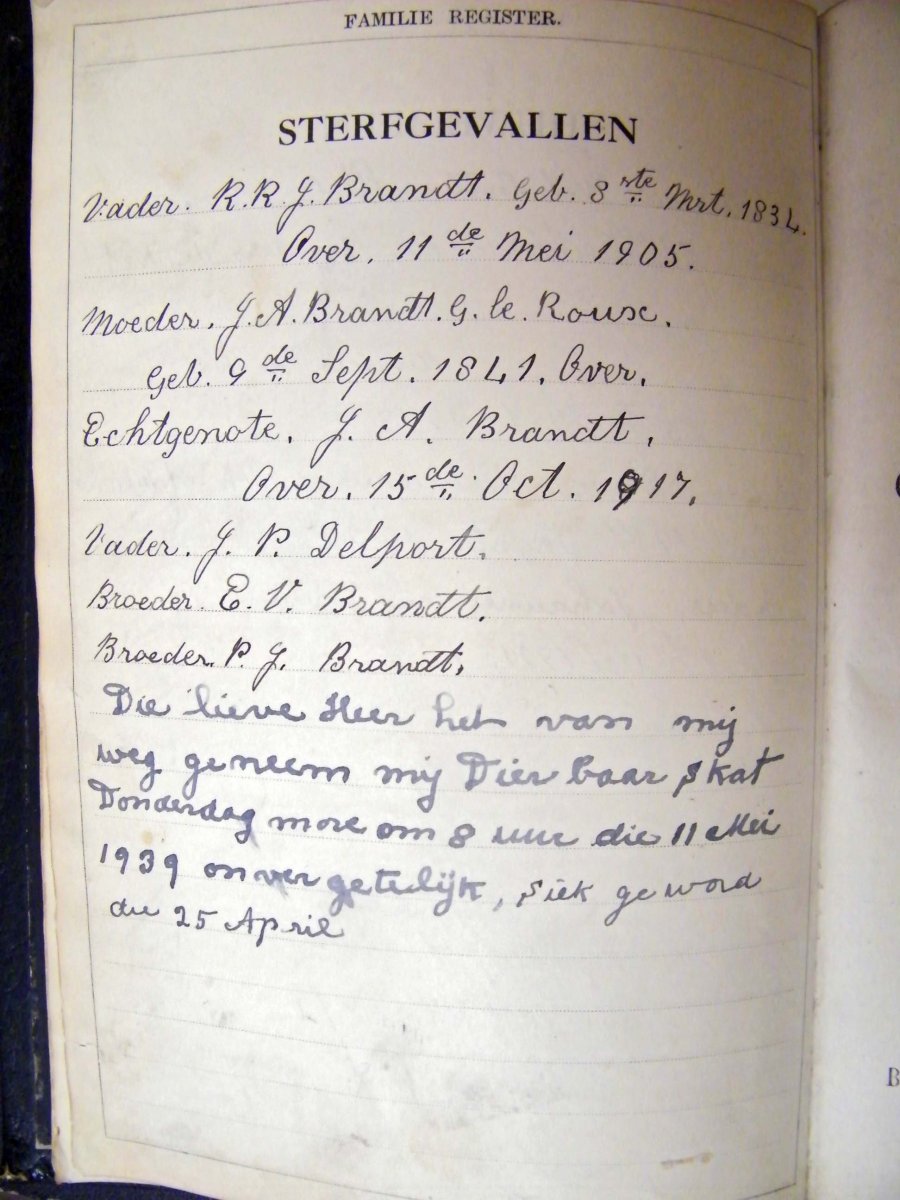 FAMILIE REGISTER.
STERFGEVALLEN
Vader. R. R. J. Brandt. Geb. 8ste Mrt. 1834.
Over. 11de Mei 1905.
Moeder. J. A. Brandt. G. le. Roux.
Geb. 9de Sept. 1841. Over.
Echtgenote. J. A. Brandt.
Over. 15de Oct. 1917.
Vader. J. P. Delport.
Broeder. E. V. Brandt.
Broeder. P. J. Brandt.
Die lieve Heer het van mij
weg geneem mij Dier baar skat
Donderdag more om 8 uur die 11 Mei
1939 onvergetelijk, siek geword
die 25 April
B